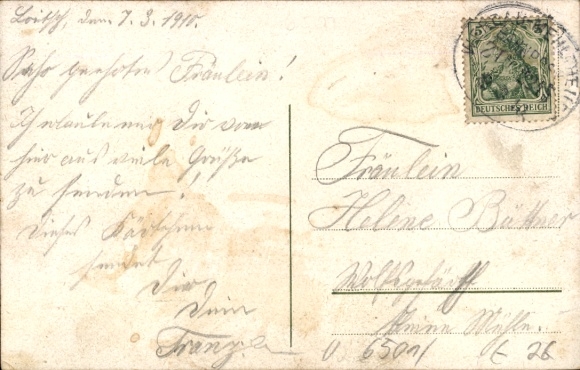 Loitsch, den 7. 3. 1910.
Sehr geehrtes Fräulein!
Ich erlaube mir Dir von
hier aus viele Grüße
zu senden!
Dieses Kärtchen
sendet
Dir
Dein
Franz
DEUTSCHES REICH
Fräulein
Helene Büttner
Wolfsgefärth
Kleine Mühle.
6501
t 26